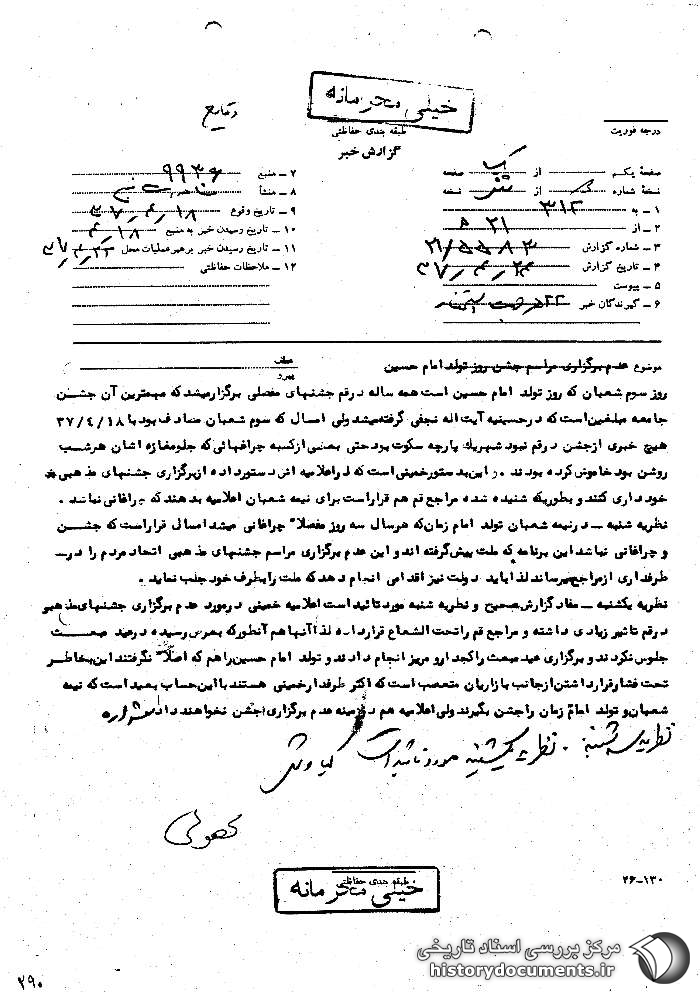 خیلی محرمانه
طبقه بندی حفاظتی
گزارش خبر
درجه فوریت
صفحه یکم از یک صفحه
نسخه شماره از نسخه
۱ ـ به ۳۱۲
۲ ـ از ۲۱ ه
۳ ـ شماره گزارش ۲۱/۵۵۸۳
۴ ـ تاریخ گزارش ۳۷,۴,۲۴
۵ ـ پیوست
۶ ـ گیرندگان خبر
۷ ـ منبع ۹۹۳۶
۸ ـ منشأ
۹ ـ تاریخ وقوع ۳۷,۴,۱۸
۱۰ ـ تاریخ رسیدن خبر به منبع ۴,۱۸
۱۱ ـ تاریخ رسیدن خبر برهبر عملیات محل ۳۷,۴,۲۲
۱۲ ـ ملاحظات حفاظتی
موضوع عدم برگزاری مراسم جشن روز تولد امام حسین
عطف
پیرو
روز سوم شعبان که روز تولد امام حسین است همه ساله درقم جشنهای مفصلی برگزارمیشد که مهمترین آن جشن
جامعه مبلغین است که درحسینیه آیت اله نجفی گرفته میشد ولی امسال که سوم شعبان مصادف بود با ۳۷/۴/۱۸
هیچ خبری ازجشن درقم نبود شهریک پارچه سکوت بود حتی بعضی ازکسبه چراغهائی که جلومغازه اشان هرشب
روشن بود خاموش کرده بودند . واین بدستورخمینی است که دراعلامیه اش دستورداده ازبرگزاری جشنهای مذهبی
خودداری کنند و بطوریکه شنیده شده مراجع قم هم قراراست برای نیمه شعبان اعلامیه بدهند که چراغانی نباشد .
نظریه شنبه ـ درنیمه شعبان تولد امام زمان که هرسال سه روز مفصلا" چراغانی میشد امسال قراراست که جشن
و چراغانی نباشد این برنامه که ملت پیش گرفته اند و این عدم برگزاری مراسم جشنهای مذهبی اتحاد مردم را در
طرفداری ازمراجع میرساند لذا باید دولت نیز اقدامی انجام دهد که ملت را بطرف خود جلب نماید .
نظریه یکشنبه ـ مفاد گزارش صحیح و نظریه شنبه مورد تائید است اعلامیه خمینی درمورد عدم برگزاری جشنهای مذهبی
درقم تاثیر زیادی داشته و مراجع قم را تحت الشعاع قرارداده لذا آنها هم آنطورکه بعرض رسیده درعید مبعث
جلوس نکردند و برگزاری عید مبعث را کجدار و مریز انجام دادند و تولد امام حسین را هم که اصلا" نگرفتند این بخاطر
تحت فشارقرارداشتن ازجانب بازاریان متعصب است که اکثر طرفدارخمینی هستند با این حساب بعید است که نیمه
شعبان و تولد امام زمان را جشن بگیرند ولی اعلامیه هم درزمینه عدم برگزاری جشن نخواهند داد
نظریه سه شنبه . نظریه یکشنبه مورد تائید است
خیلی محرمانه
طبقه بندی حفاظتی
۲۶-۱۳۰
مرکز بررسی اسناد تاریخی
historydocuments.ir
۲۹۰